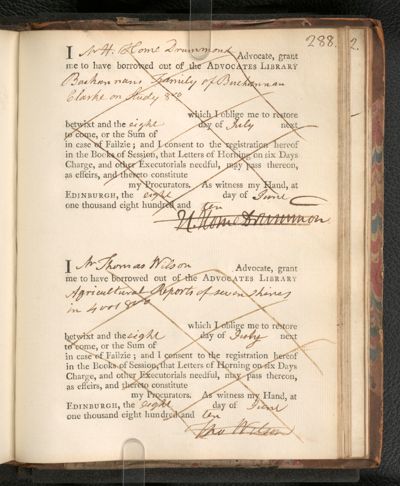 288.
2.
I Mr H. Home Drummond Advocate, grant
me to have borrowed out of the ADVOCATES LIBRARY
Buchannans Family of Buchannan
Clarke on Study 8vo
which I oblige me to restore
betwixt and the eight day of July next
to come, or the Sum of
in case of Failzie; and I consent to the registration hereof
in the Books of Session, that Letters of Horning on six Days
Charge, and other Executorials needful, may pass thereon,
as effeirs, and thereto constitute
my Procurators. As witness my Hand, at
EDINBURGH, the eight day of June
one thousand eight hundred and ten
H. Home Drummon
I Mr Thomas Wilson Advocate, grant
me to have borrowed out of the ADVOCATES LIBRARY
Agricultural Reports of seven Shires
in 4 vols 8vo
which I oblige me to restore
betwixt and the eight day of July next
to come, or the Sum of
in case of Failzie; and I consent to the registration hereof
in the Books of Session, that Letters of Horning on six Days
Charge, and other Executorials needful, may pass thereon,
as effeirs, and thereto constitute
my Procurators. As witness my Hand, at
EDINBURGH, the eight day of June
one thousand eight hundred and ten
Tho Wilson